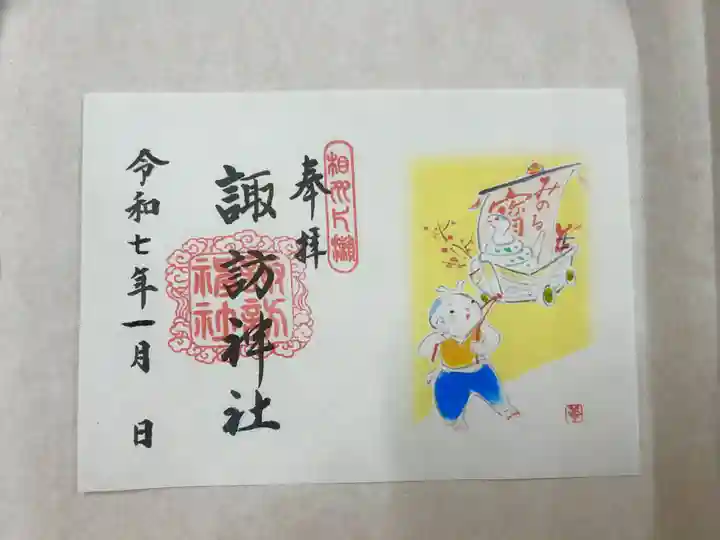 奉拝
相州片瀬
諏訪神社
諏訪神社
令和七年一月 日
みのる
寳